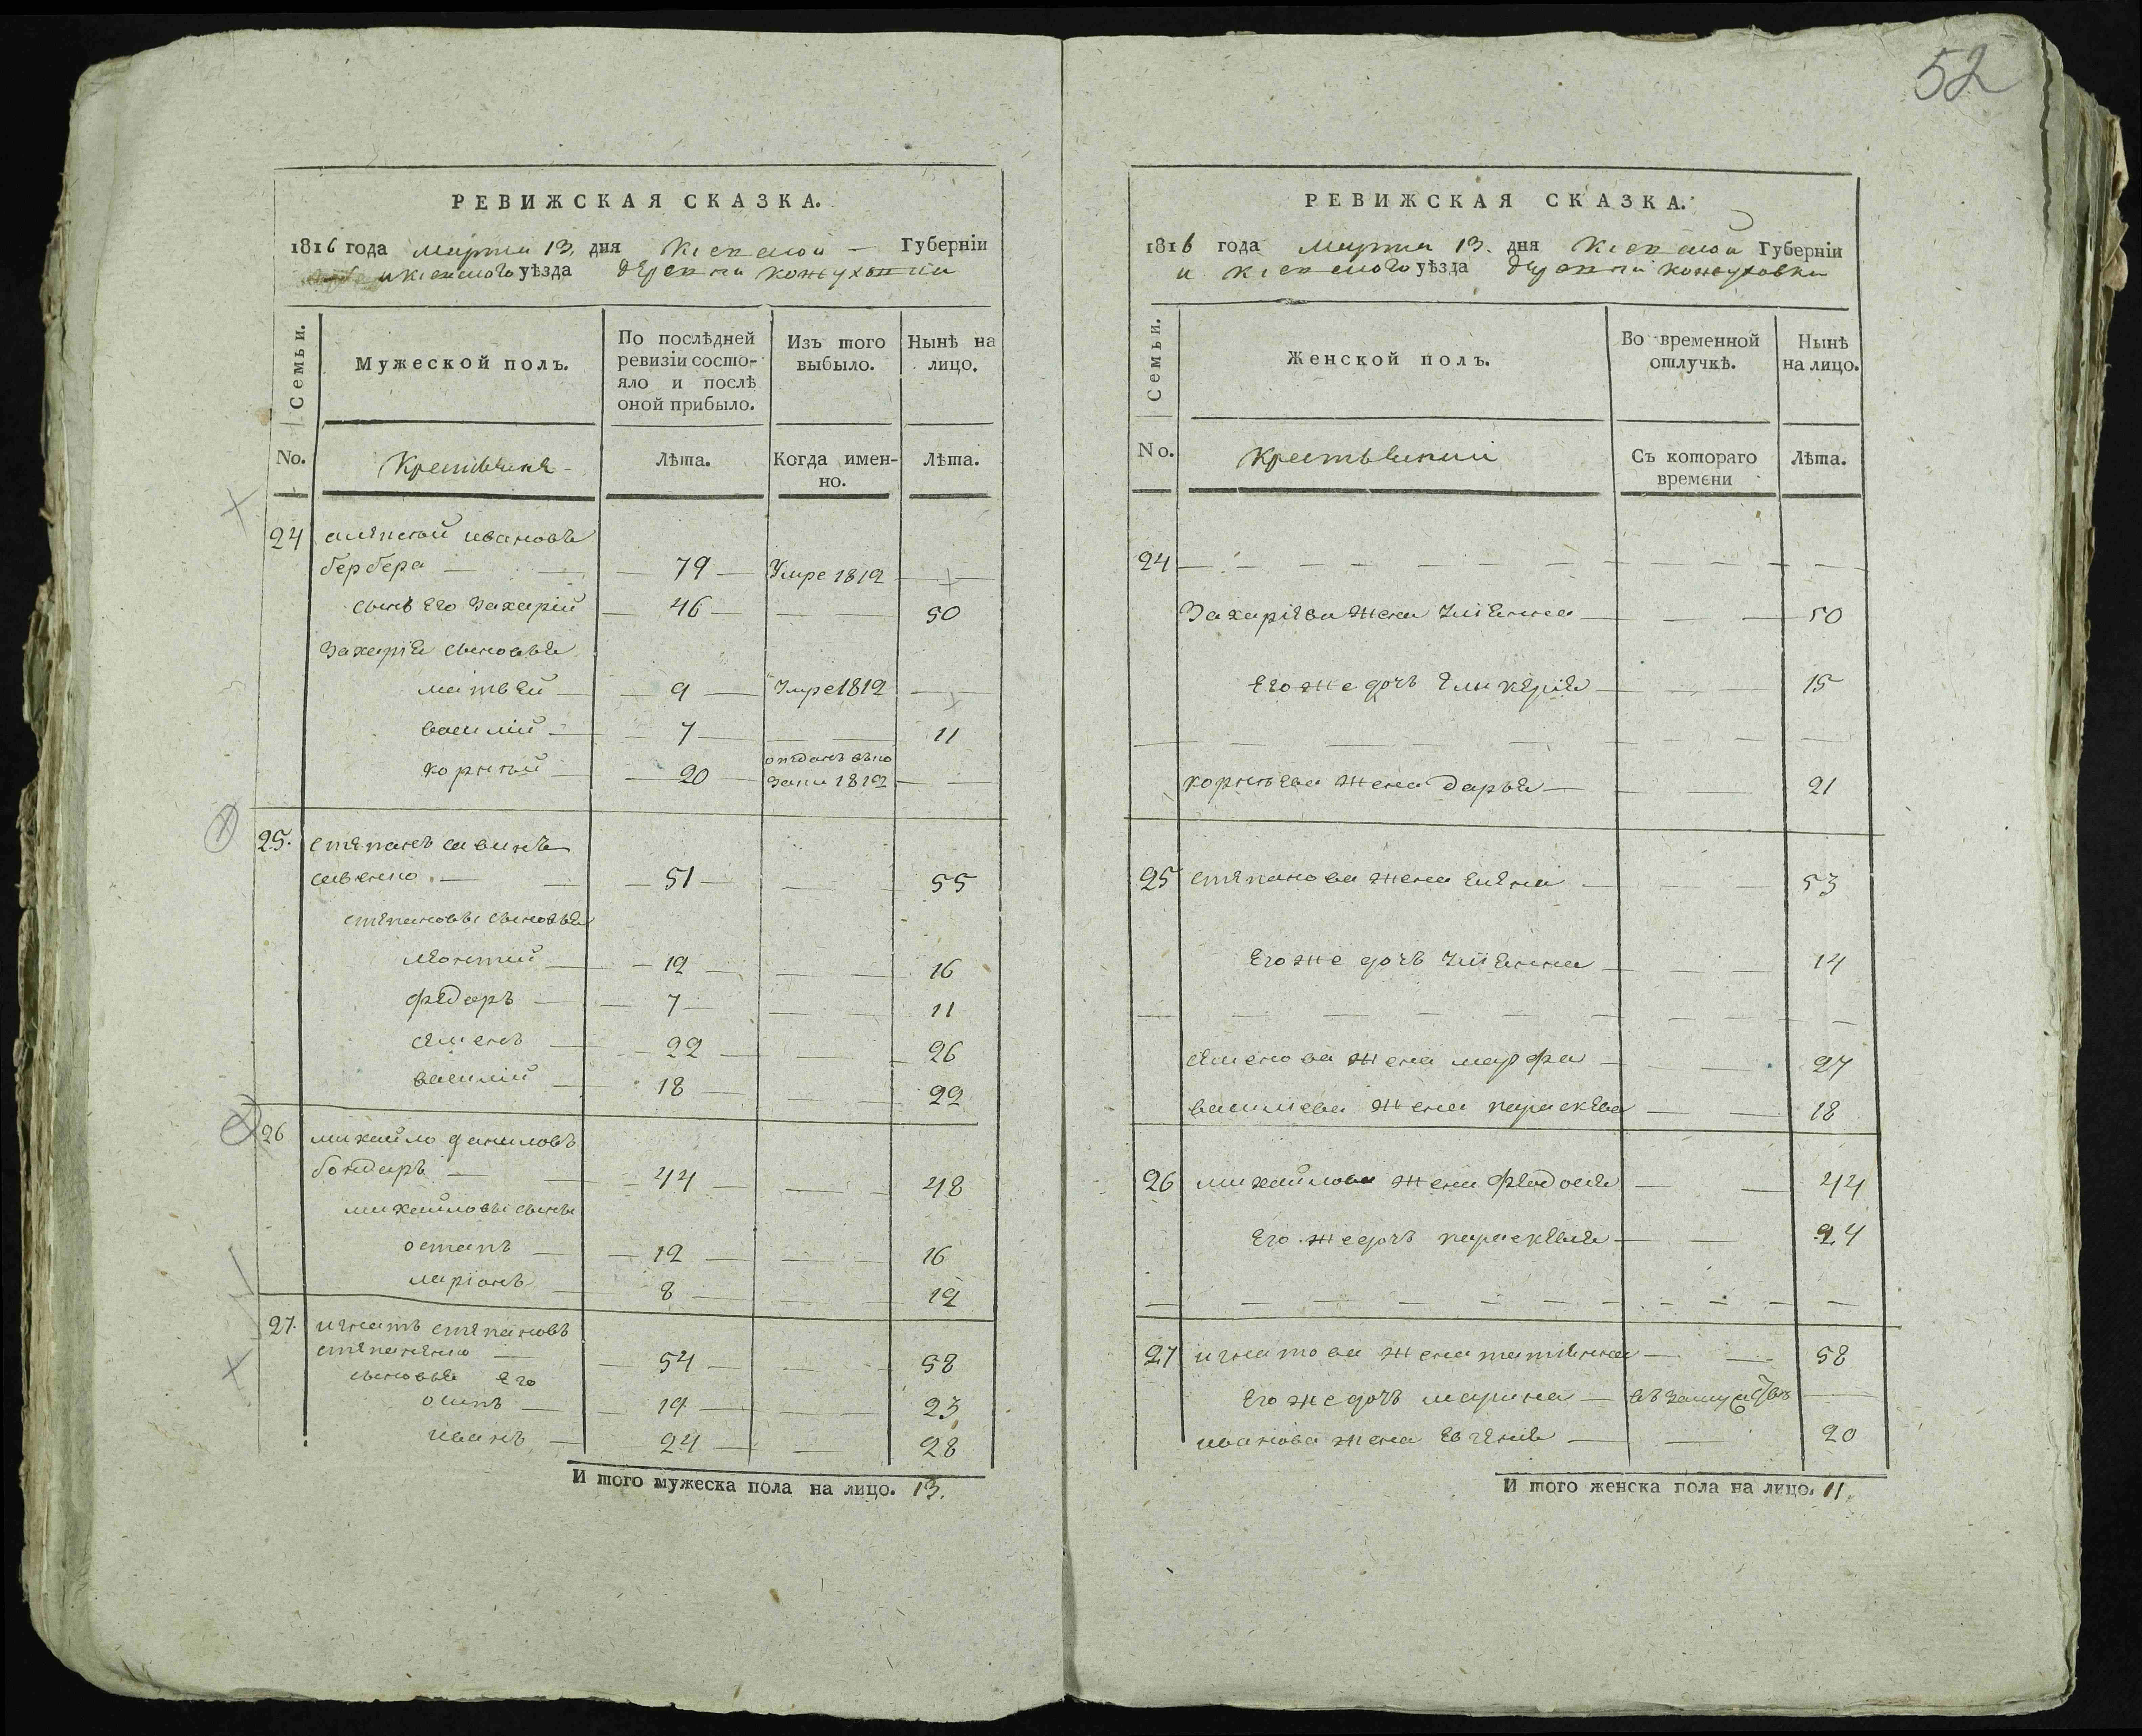 52
РЕВИЖСКАЯ СКАЗКА.
1816 года Марта 13. дня Киевской Губернїи
и киевского уѣзда деревни конюховки
Семьи.
Мужеской полъ.
По послѣдней ревизїи состо-
яло и послѣ
оной прибыло.
Изъ того
выбыло.
Нынѣ на
лицо.
No.
Крестьяне
Лѣта.
Когда имен-
но.
Лѣта.
24 ивановъ
бербера — 79 — Умре 1812 —
сынъ его Захарїй — 46 — 50
Захарїя сыновья
матвѣй — 9 — Умре 1812 —
василїй — 7 — 11
корнѣй — 20 — 1812 —
25. степанъ савинъ
савенко — 51 — 55
степановы сыновья
леонтїй — 12 — 16
федоръ — 7 — 11
семенъ — 22 — 26
василїй — 18 — 22
26 михайло даниловъ
бондаръ — 44 — 48
михайловы сыны
остапъ — 12 — 16
ларїонъ — 8 — 12
27. игнатъ степановъ
степаненко — 54 — 58
сыновья его
осипъ — 19 — 23
иванъ — 24 — 28
И того мужеска пола на лицо. 13.
РЕВИЖСКАЯ СКАЗКА.
1816 года Марта 13. дня Киевской Губернїи
и киевского уѣзда деревни конюховки
Семьи.
Женской полъ.
Во временной
отлучкѣ.
Нынѣ
на лицо.
No.
Крестьянки
Съ котораго
времени
Лѣта.
24 —
Захарїева жена Улїянна — 50
его же дочь Гликерїя — 15
корнѣева жена дарья — 21
25 степанова жена елена — 53
его же дочь Улїянна — 14
семенова жена марфа — 27
василїева жена параскева — 18
26 михайлова жена федосїя — 44
его же дочь параскевїя — 24
27 игнатова жена татїянна — 58
его же дочь марина — въ замужствѣ —
иванова жена евгенїя — 20
И того женска пола на лицо. 11.